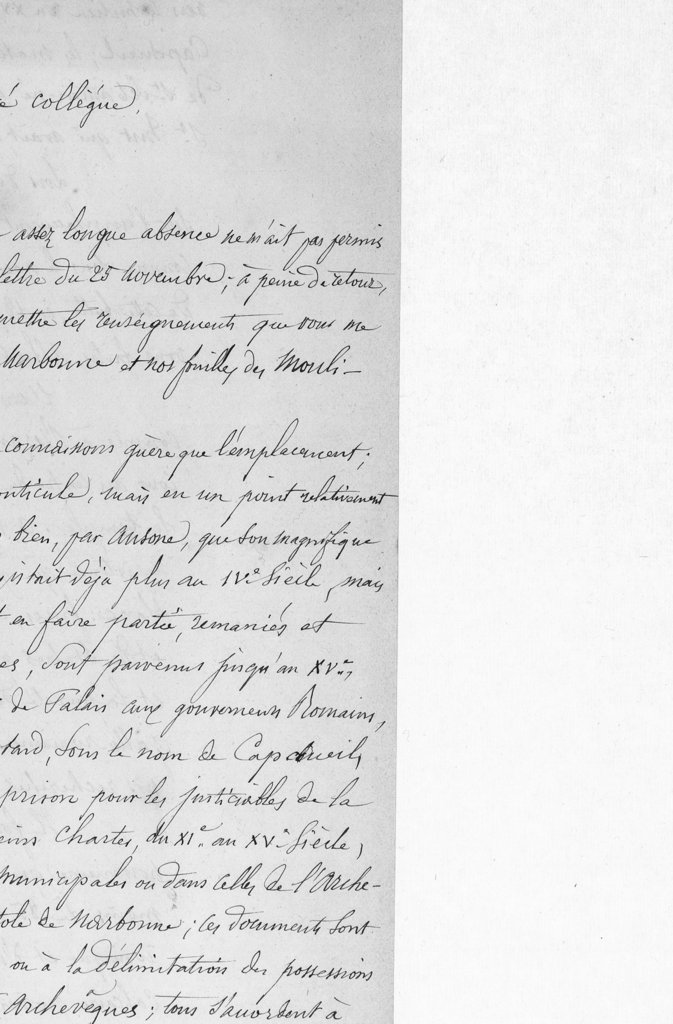 é collègue,
assez longue absence ne m'ait pas permis
lettre du 25 Novembre ; à peine de retour,
mettre les renseignements que vous me
Narbonne et nos fouilles des Mouli-
connaissons guère que l'emplacement ;
onticule, mais en un point relativement
bien, par Ausone, que son magnifique
istait déja plus au IVe Siècle, mais
en faire partie, remaniés et
es, sont parvenus jusqu'au XVe,
de Palais aux gouverneurs Romains,
tard, sous le nom de Capdueil,
prison pour les justiciables de la
Chartes, du XIe au XVe Siècle,
municipales ou dans celles de l'Arche-
ole de Narbonne ; ces documents sont
ou à la délimitation des possessions
Archevêques ; tous s'accordent à